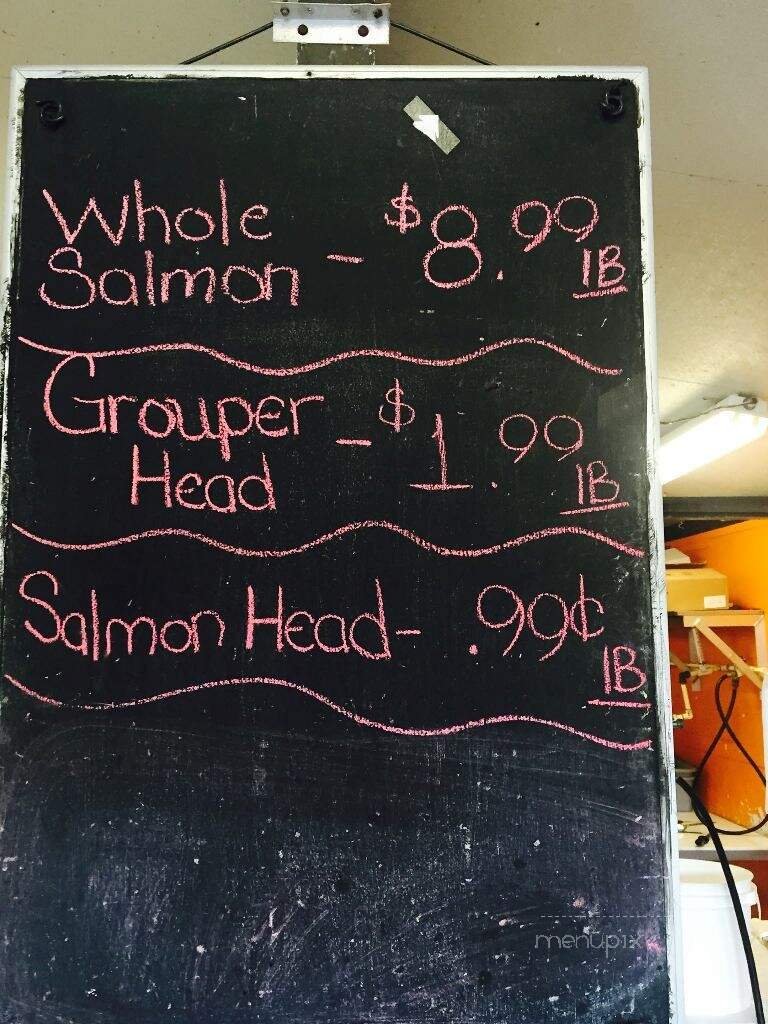 Whole
Salmon - $8.99 lB
Grouper
Head - $1.99 lB
Salmon Head - .99¢
lB
menupix